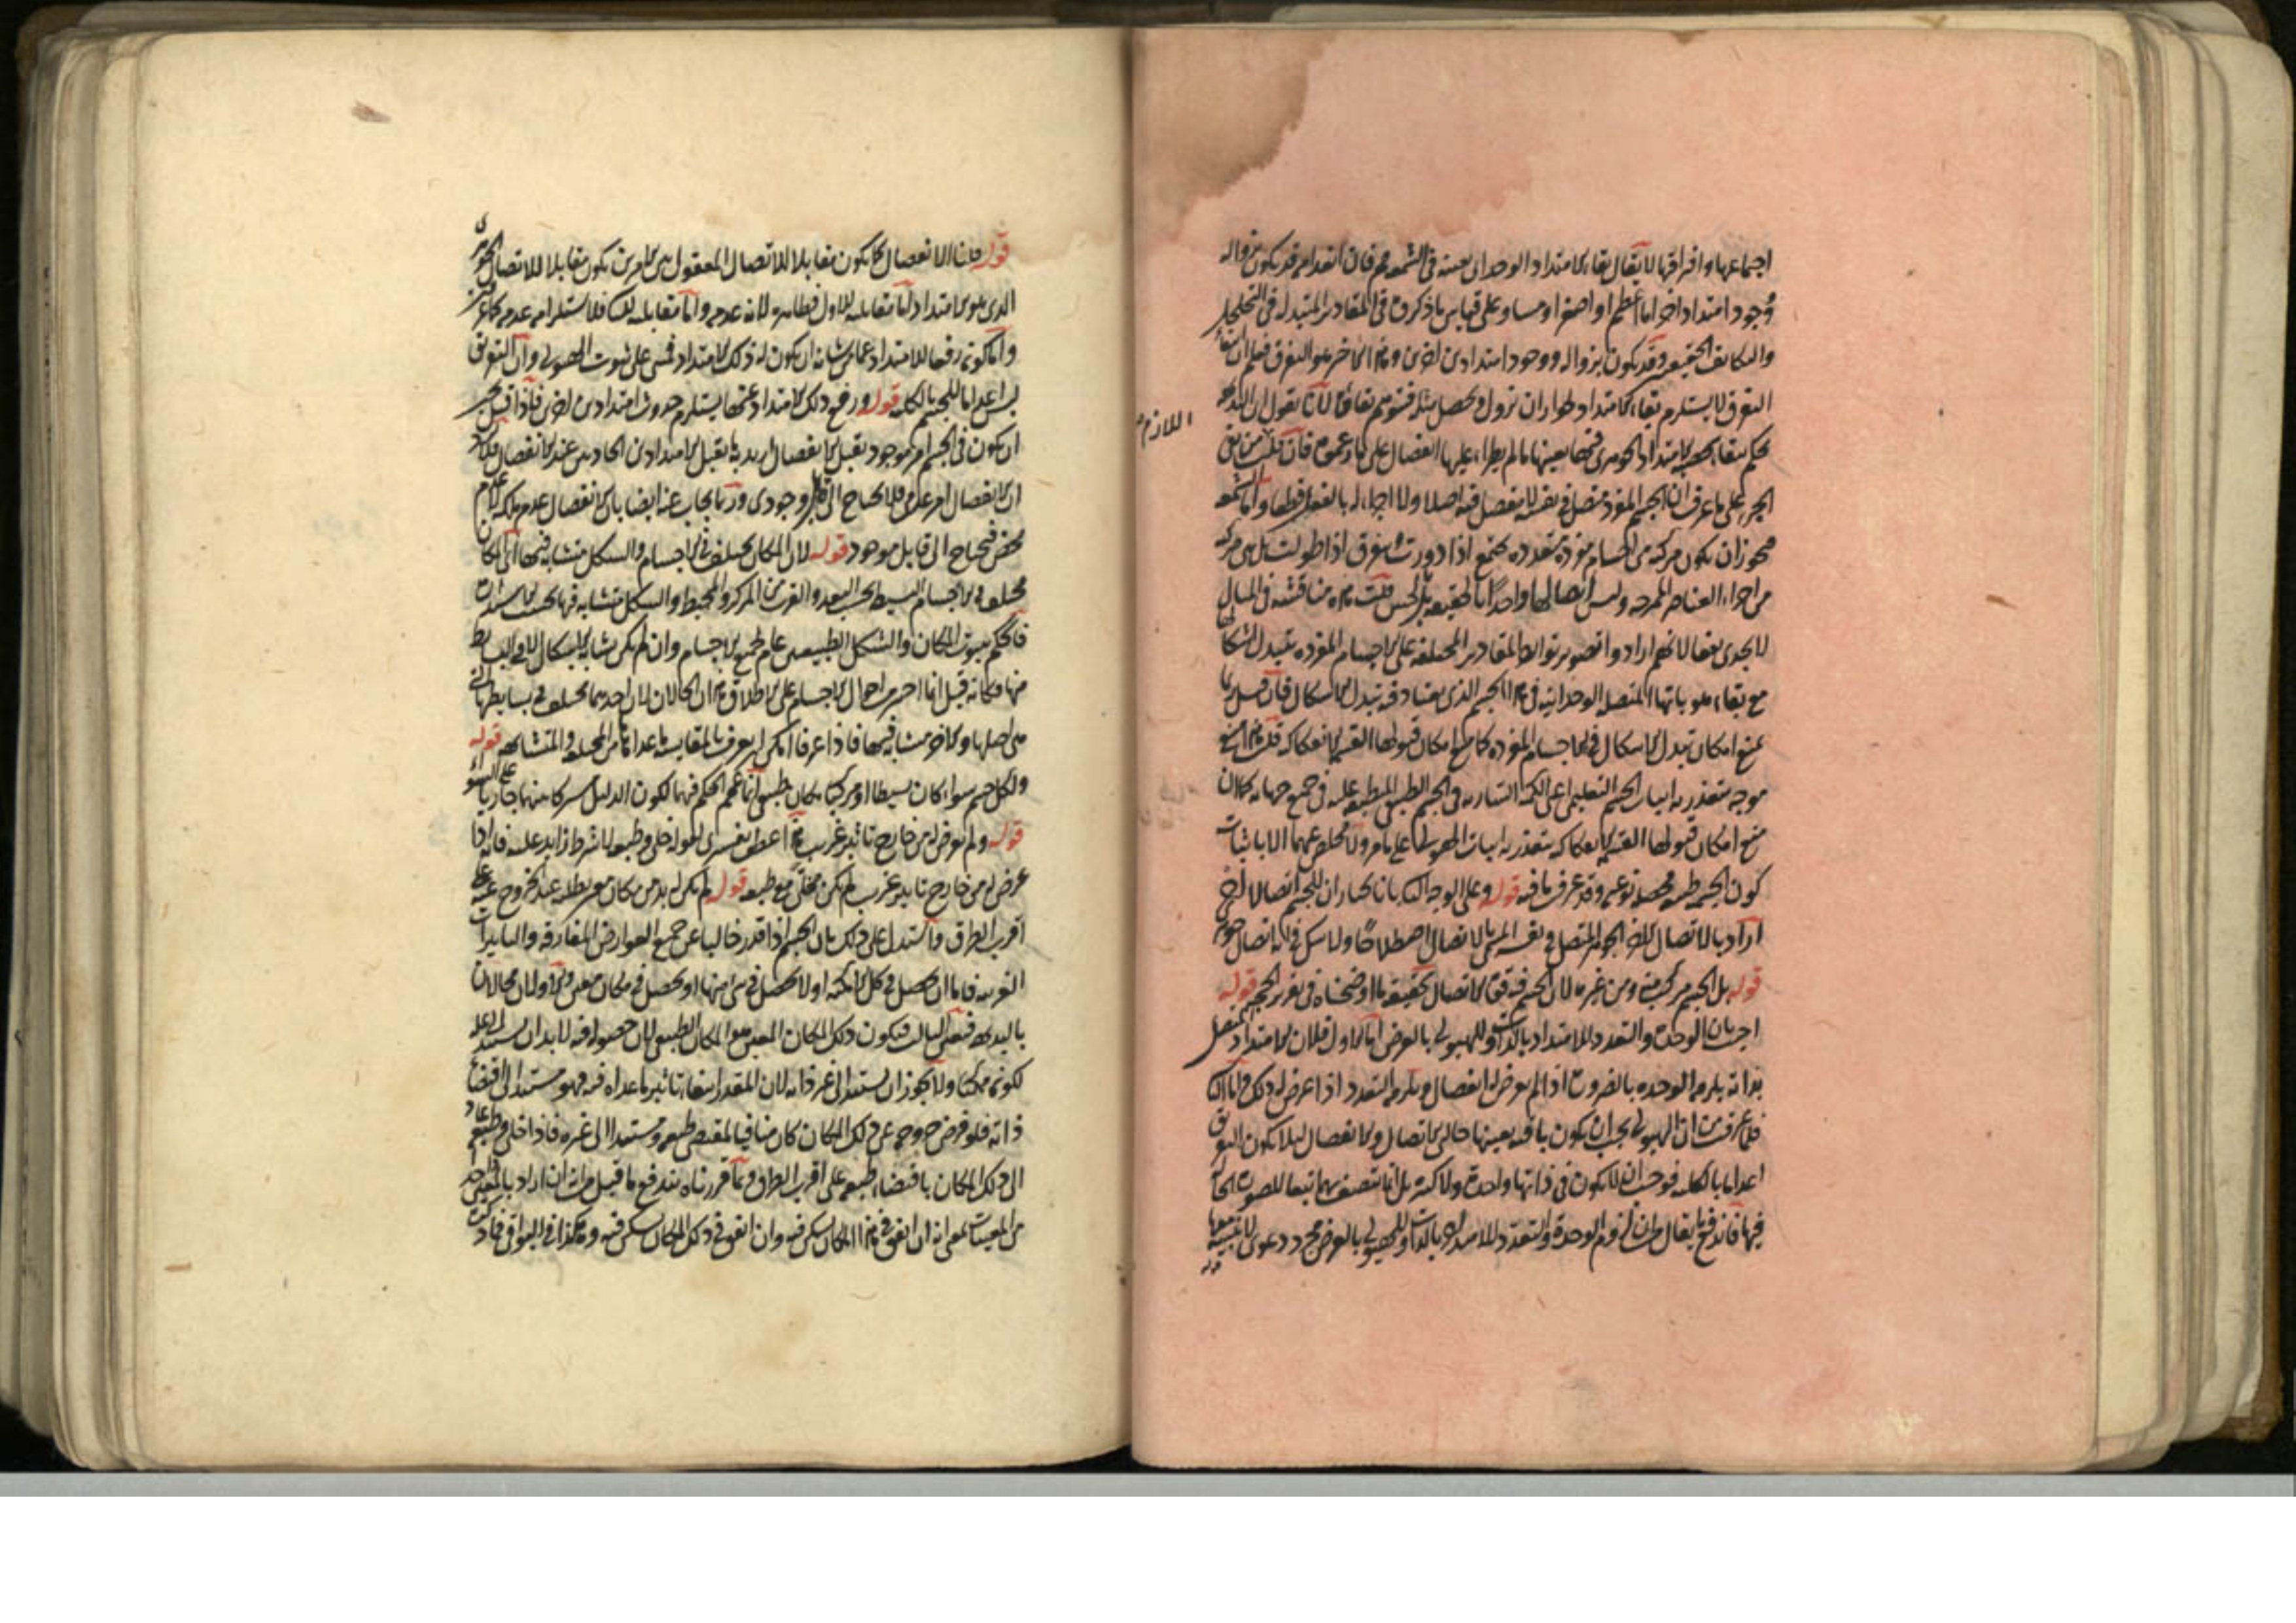 اجتماعها وافتراقها لا يقال بقاء الامتداد الوحداني بعينه في الشمعة ممنوع فان انعدامه قد يكون بزواله
وجود امتداد اخر اما اعظم او اصغر او مساو على قياس ما ذكروه في المقادير المتبدلة في التخلخل
والتكاثف الحقيقيين وقد يكون بزواله ووجود امتدادين اخرين وهذا الاخير هو التفرق فعلم ان انتفاء
التفرق لا يستلزم بقاء الامتداد لجواز ان يزول ويحصل مثله فيتوهم بقاؤه لانا نقول ان البديهة
اللازم
تحكم ببقاء الجسمية الامتداد الجوهري فيها بعينها ما لم يطرأ عليها انفصال على ما زعموه فان قلت من نفى
الجزء على ما عرف ان الجسم المفرد متصل في نفسه لا مفصل فيه اصلا ولا اجزاء له بالفعل قطعا واما الشمعة
فيجوز ان يكون مركبة من اجسام مفردة متعددة تجتمع اذا دورت وتفرق اذا طولت بل هي مركبة
من اجزاء العناصر الممتزجة وليس اتصالها واحدا حقيقة بل بالحس قلت هذه مناقشة في المثال
لا يجدي نفعا لانهم ارادوا تصوير توارد المقادير المختلفة على الاجسام المفردة بتبدل اشكالها
مع بقاء هوياتها المتصلة الوحدانية في هذا الجسم الذي يعتاد فيه تبدل الاشكال فان قيل ربما
يمنع امكان تبدل الاشكال في الاجسام المفردة كما منع امكان قبولها القسمة الانفكاكية قلت هذا منع
موجه يتعذر به اثبات الجسم التعليمي اعني الكمية السارية في الجسم الطبيعي المنطبعة عليه في جميع جهاته كما ان
منع امكان قبولها القسمة الانفكاكية يتعذر به اثبات الهيولى على ما مر ولا مخلص عنهما الا باثبات
كون الجسم طبيعة محصلة نوعية وقد عرفت ما فيه قوله وعلى الوجه الثاني بانا نختار ان للجسم اتصالا اخر
اراد بالاتصال الاخر الجوهر المتصل في نفسه المسمى بالاتصال اصطلاحا ولا شك في انه اتصال جوهري
قوله بل الجسم مركب منه ومن غيره لان الجسم فيه قوة الاتصال تحقيقه ما اوضحناه في تقرير الحجة قوله
اجيب بان الوحدة والتعدد للامتداد بالذات وللهيولى بالعرض اما الاول فلان الامتداد المتصل
بذاته يلزمه الوحدة بالضرورة اذا لم يعرض له انفصال ويلزمه التعدد اذا عرض له ذلك واما الثاني
فلما عرفت من ان الهيولى يجب ان يكون باقية بعينها حالتي الاتصال والانفصال لئلا يكون التفريق
اعداما بالكلية فوجب ان لا يكون في ذاتها واحدة ولا كثيرة بل انما تتصف بهما تبعا للصورة الحالة
فيها فاندفع ما يقال من ان لزوم الوحدة والتعدد للامتداد بالذات وللهيولى بالعرض مجرد دعوى لا بينة معها
قوله
قوله فان الانفصال كما يكون مقابلا للاتصال المعقول بين الامرين يكون مقابلا للاتصال الجوهري
الذي هو الامتداد اما مقابلته للاول فظاهرة لانه عدمه واما مقابلته للثاني فلاستلزامه عدمه كما عرفت
واما كونه رفعا للامتداد عما من شانه ان يكون له ذلك الامتداد فمبني على ثبوت الهيولى وان التفريق
ليس اعداما للجسم بالكلية قوله ورفع ذلك الامتداد عنها يستلزم حدوث امتدادين اخرين فاذا قيل يجب
ان يكون في الجسم امر موجود يقبل الانفصال اريد به ما يقبل الامتدادين الحادثين عند الانفصال فلا يرد
ان الانفصال امر عدمي فلا يحتاج الى قابل وجودي وربما يجاب عنه ايضا بان الانفصال عدم ملكة لا عدم
محض فيحتاج الى قابل موجود قوله لان المكان يختلف في الاجسام والشكل متشابه فيها اي المكان
مختلف في الاجسام البسيطة بحسب البعد والقرب من المركز والمحيط والشكل متشابه فيها بحسب الاستدارة
فالحكم بثبوت المكان والشكل الطبيعيين عام لجميع الاجسام وان لم يكن تشابه الاشكال الا في البسائط
منها فكانه قيل انما اختير من احوال الاجسام على الاطلاق هذان الحالان لان احدهما يختلف في بسائطها التي
هي اصلها والاخر متشابه فيها فاذا عرفا امكن ان يعرف بالمقايسة ما عداهما من المختلفة والمتشابهة قوله
ولكل جسم سواء كان بسيطا او مركبا مكان طبيعي انما عمم الحكم فيهما لكون الدليل مشتركا بينهما جاريا على السواء
قوله ولم يعرض له من خارج تاثير غريب هذا عطف تفسيري لقوله خلي وطبعه لا شرط زايد عليه فانه اذا
عرض له من خارج تاثير غريب لم يكن مخلى مع طبعه قوله لم يكن له بد من مكان معين يطلبه عند الخروج عنه على
اقرب الطرق واستدل على ذلك بان الجسم اذا قدر خاليا عن جميع العوارض المفارقة والتاثيرات
الغريبة فاما ان يحصل في كل الامكنة او لا يحصل في شيء منها او يحصل في مكان معين والاولان محالان
بالبديهة فتعين الثالث فيكون ذلك المكان المعين هو المكان الطبيعي لان حصوله فيه لا بد ان يستند الى علة
لكونه ممكنا ولا يجوز ان يستند الى غير ذاته لان المقدر انتفاء تاثير ما عداه فيه فهو مستند الى اقتضاء
ذاته فلو فرض خروجه عن ذلك المكان كان منافيا لمقتضى طبعه ومستندا الى غيره فاذا خلي وطبعه عاد
الى ذلك المكان باقتضاء طبعه على اقرب الطرق وبما قررناه يندفع ما قيل من انه ان اراد بالمعين واحد
من المعينات بمعنى انه ان اتفق في هذا المكان سكن فيه وان اتفق في ذلك المكان سكن فيه وهكذا في البواقي